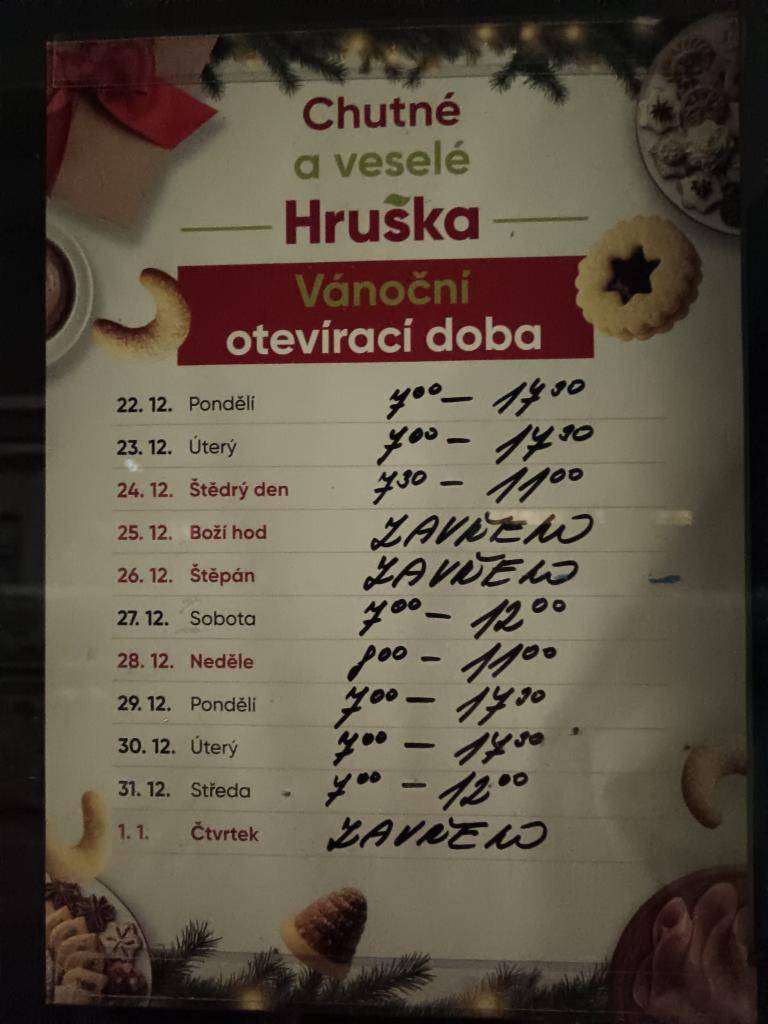 Chutné
a veselé
Hruška
Vánoční
otevírací doba
22. 12. Pondělí 7⁰⁰ — 17³⁰
23. 12. Úterý 7⁰⁰ — 17³⁰
24. 12. Štědrý den 7³⁰ — 11⁰⁰
25. 12. Boží hod ZAVŘENO
26. 12. Štěpán ZAVŘENO
27. 12. Sobota 7⁰⁰ — 12⁰⁰
28. 12. Neděle 8⁰⁰ — 11⁰⁰
29. 12. Pondělí 7⁰⁰ — 17³⁰
30. 12. Úterý 7⁰⁰ — 17³⁰
31. 12. Středa 7⁰⁰ — 12⁰⁰
1. 1. Čtvrtek ZAVŘENO